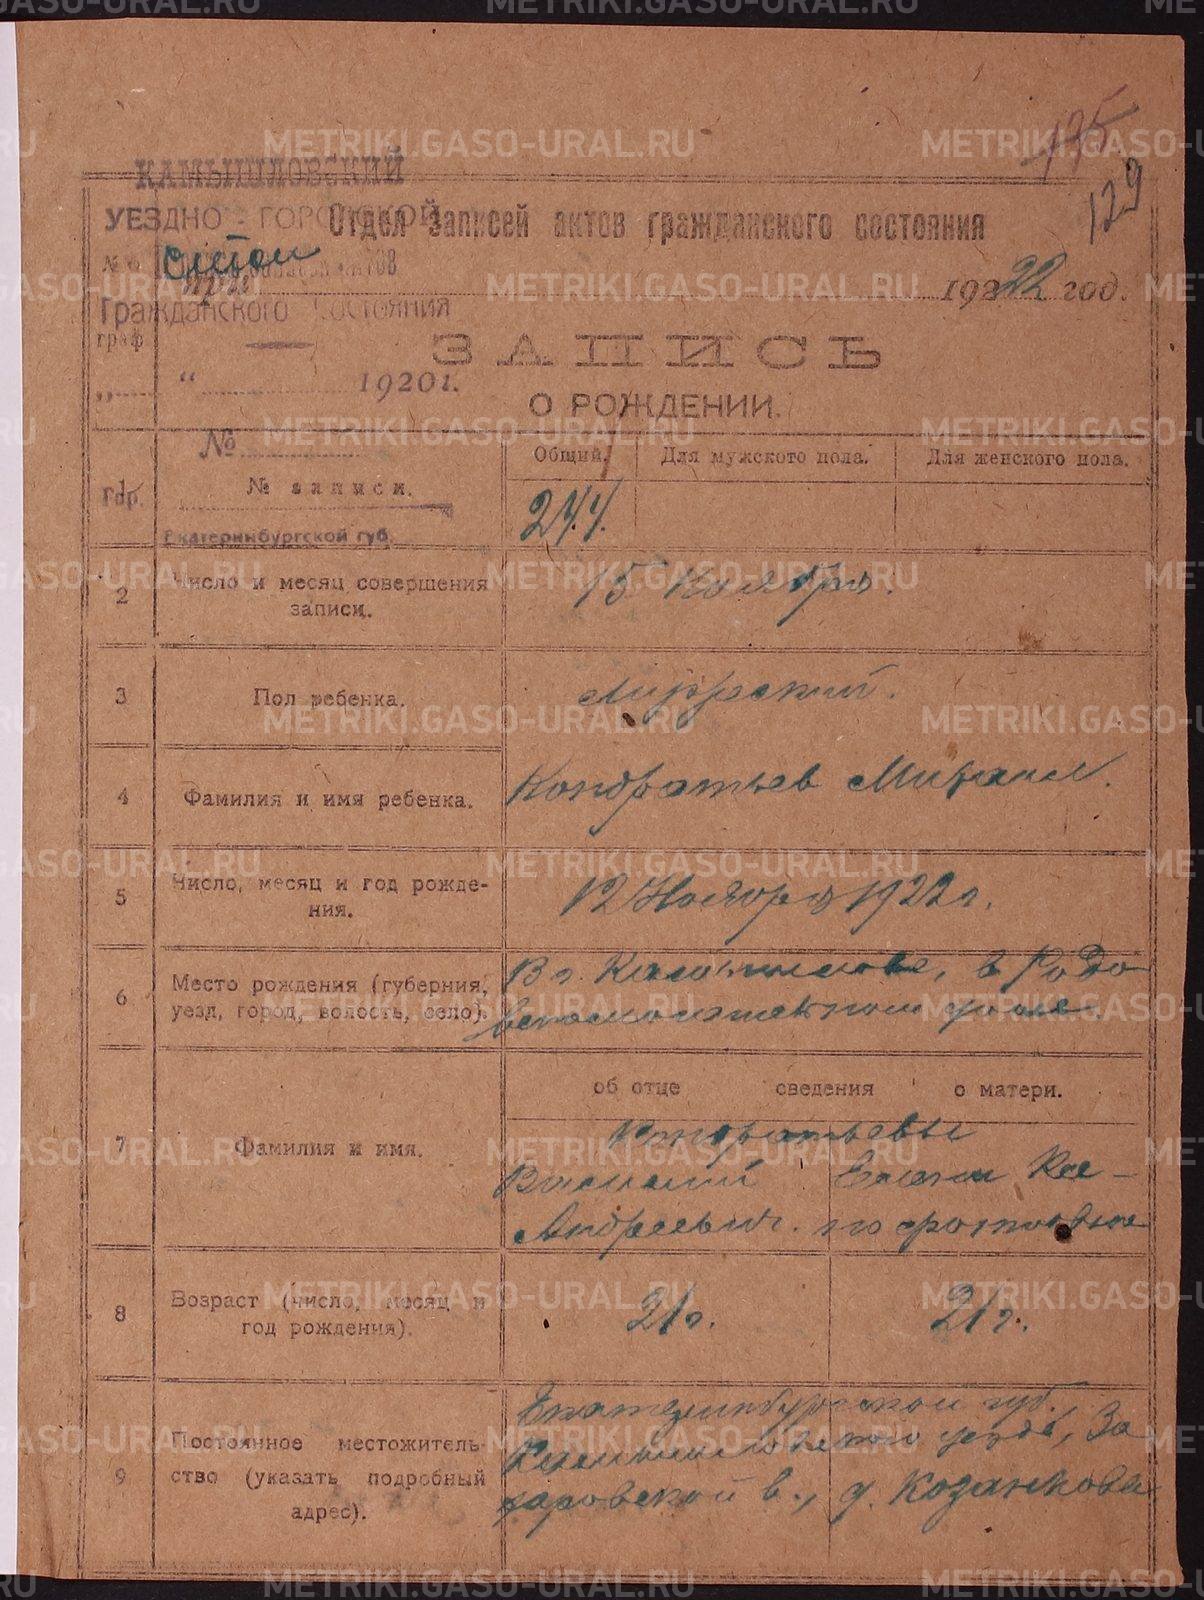 135
129
КАМЫШЛОВСКИЙ
УЕЗДНО - ГОРОДСКОЙ
Отдел Записей актов гражданского состояния
1922 год.
Гражданского Состояния
граф
ЗАПИСЬ
„ “ 1920 г.
О РОЖДЕНИИ.
№
Общий. Для мужского пола. Для женского пола.
Гор.
№ записи.
244.
Екатеринбургской губ.
2 Число и месяц совершения
записи.
15 Ноября.
3 Пол ребенка.
Мужеский.
4 Фамилия и имя ребенка.
Кондратьев Михаил.
5 Число, месяц и год рожде-
ния.
12 Ноября 1922 г.
6 Место рождения (губерния,
уезд, город, волость, село).
В г. Камышлове, в Родо
вспомогательном доме.
об отце сведения о матери.
7 Фамилия и имя.
Кондратьевы
Василий
Андреевич.
Елена
8 Возраст (число, месяц и
год рождения).
21 г. 21 г.
9 Постоянное местожитель-
ство (указать подробный
адрес).
Екатеринбургской губ.
Камышловского уезда, За
харовской в., д. Козанкова
METRIKI.GASO-URAL.RU